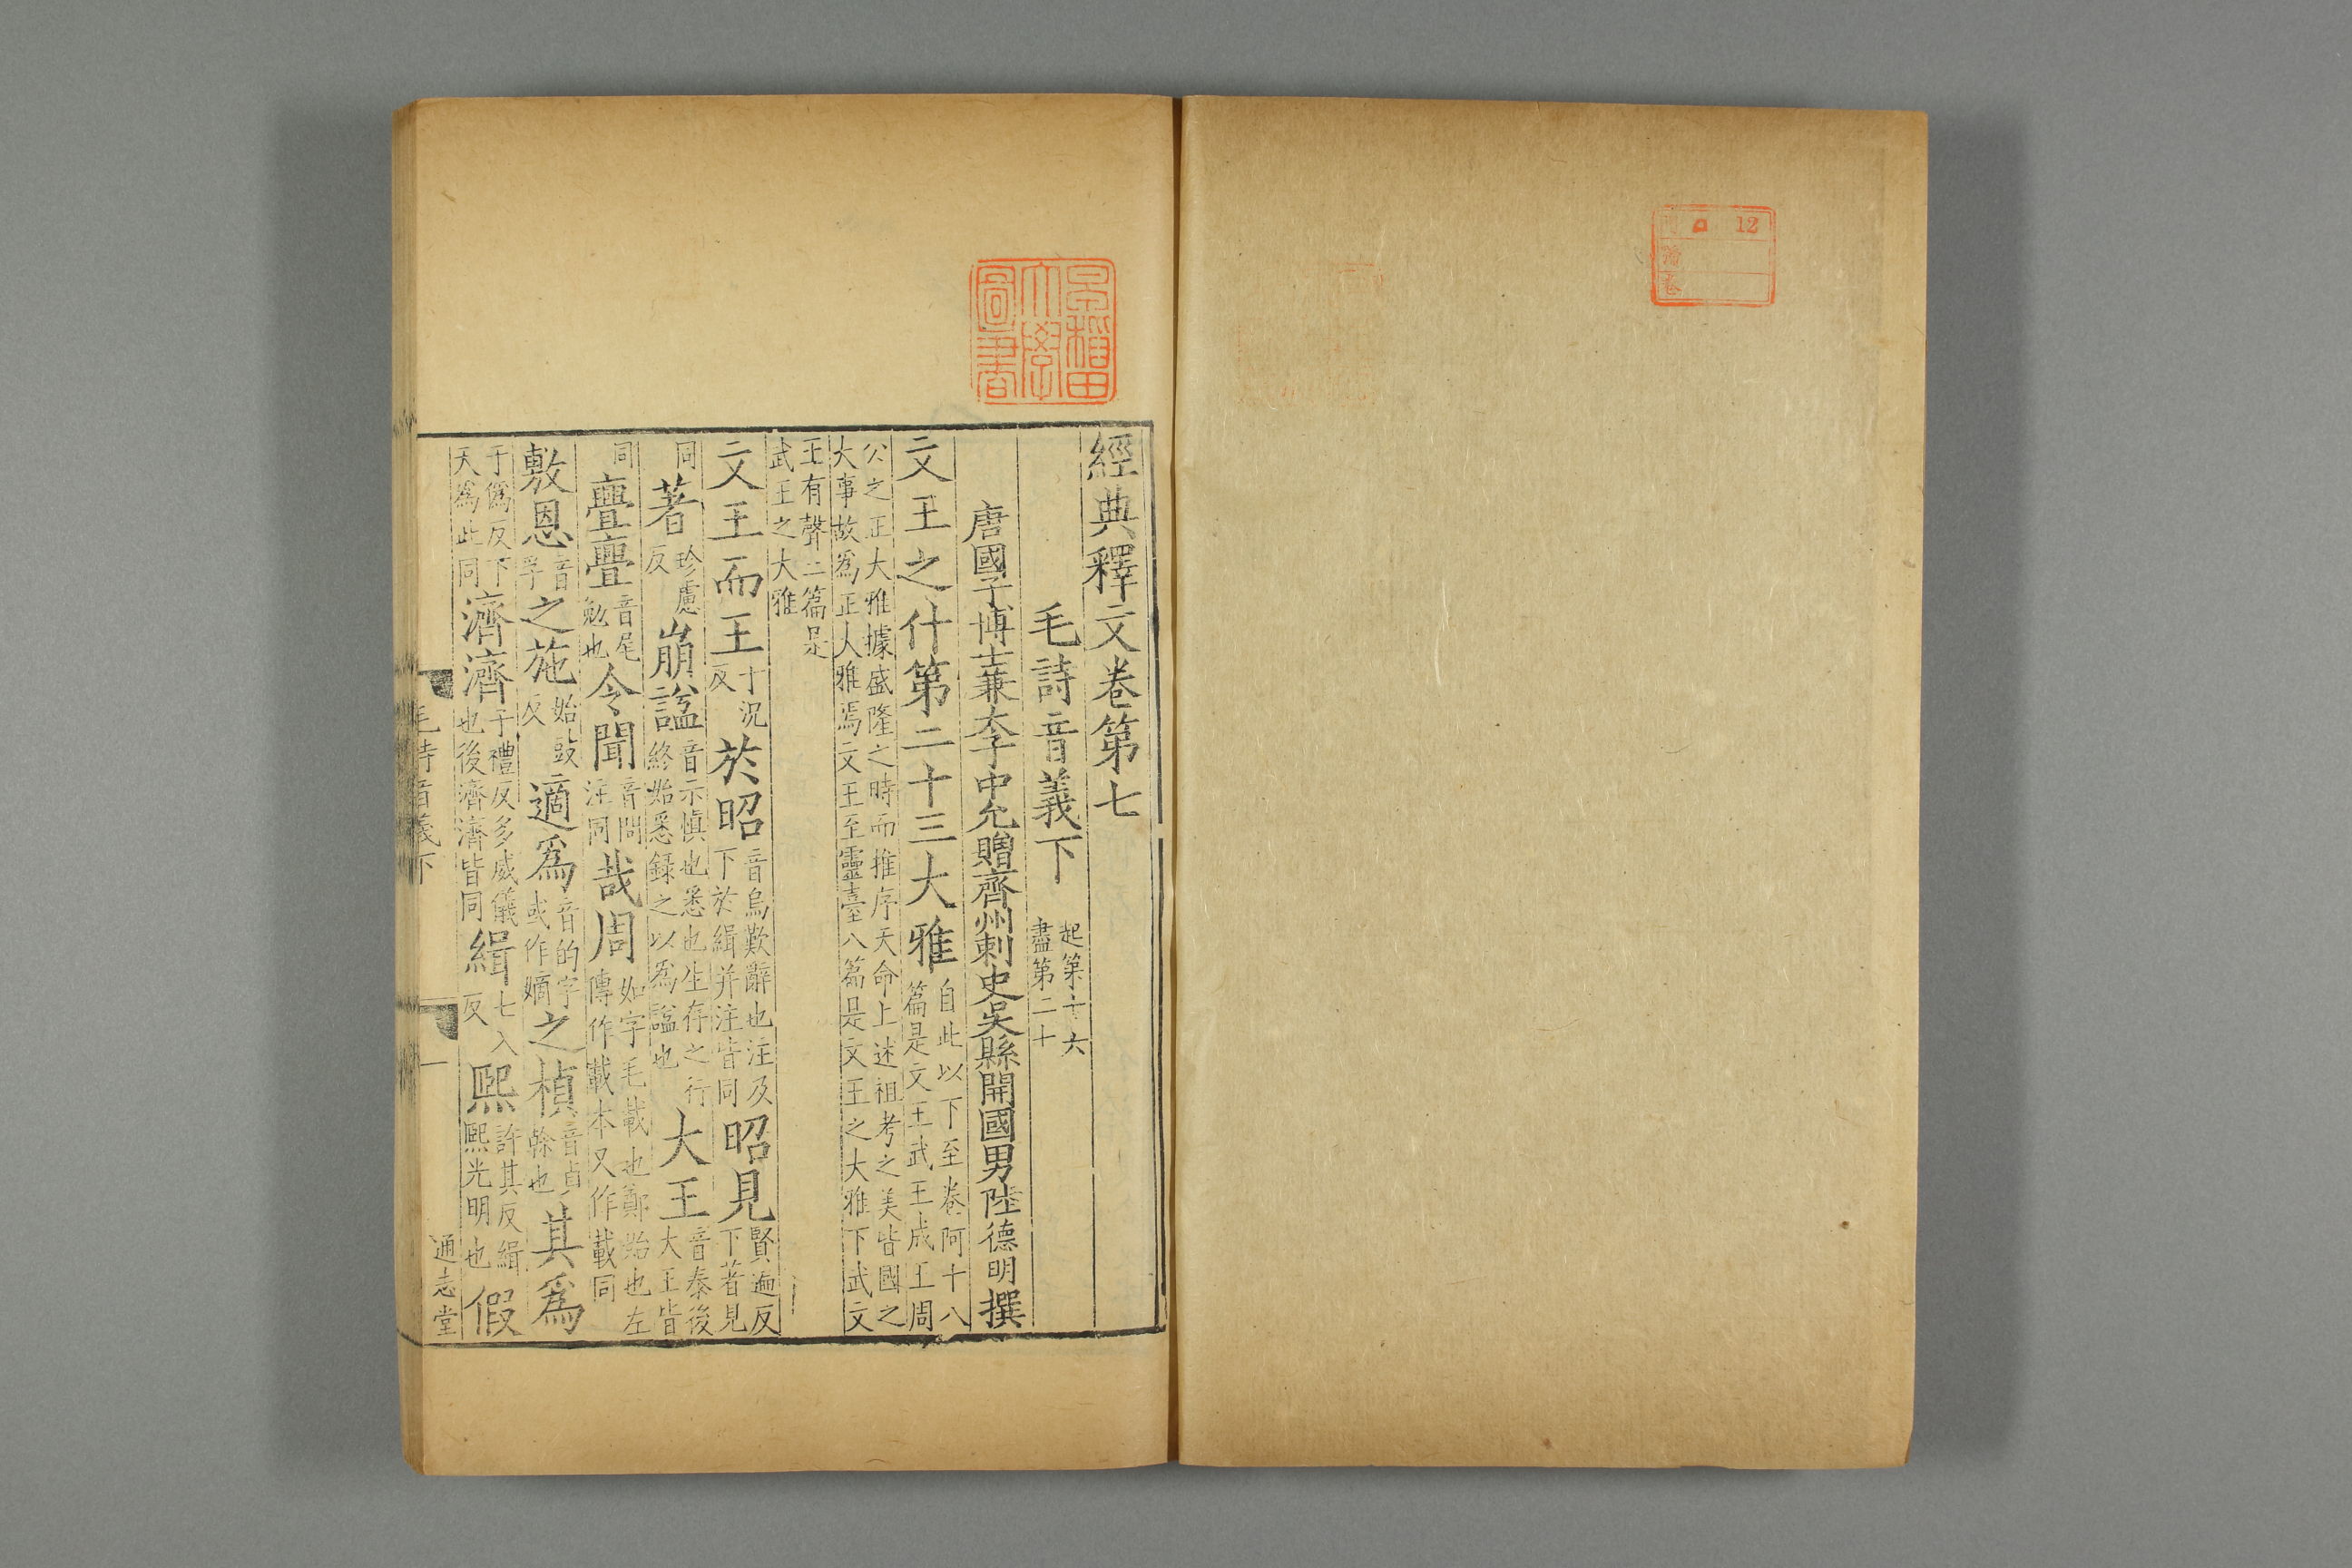 12
早稲田
大學
圖書
經典釋文卷第七
毛詩音義下 起第十六盡第二十
唐國子博士兼太子中允贈齊州刺史吳縣開國男陸德明撰
文王之什第二十三大雅 自此以下至卷阿十八篇是文王武王成王周
公之正大雅據盛隆之時而推序天命上述祖考之美皆國之大事故爲正大雅焉文王至靈臺八篇是文王之大雅下武文
王有聲二篇是武王之大雅
文王而王 于況反 於昭 音烏歎辭也注及下於緝并注皆同 昭見 賢遍反下著見
同 著 珍慮反 崩謚 音示愼也悉也生存之行終始悉錄之以爲謚也 大王 音泰後大王皆
同 亹亹 音尾勉也 令聞 音問注同 哉周 如字毛載也鄭始也左傳作載本又作載同
敷恩 音孚 之施 始豉反 適爲 音的字或作嫡 之楨 音貞榦也 其爲
于僞反下天爲此同 濟濟 子禮反多威儀也後濟濟皆同 緝 七入反 熙 許其反緝熙光明也 假
毛詩音義下 一 通志堂